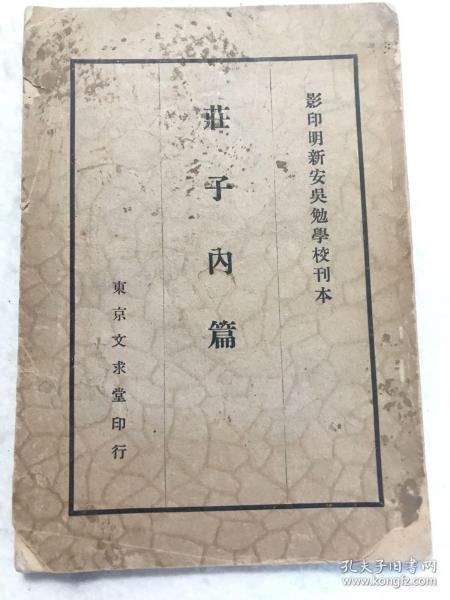 影印明新安吳勉學校刊本
莊子內篇
東京文求堂印行
孔夫子旧书网
www.kongfz.com